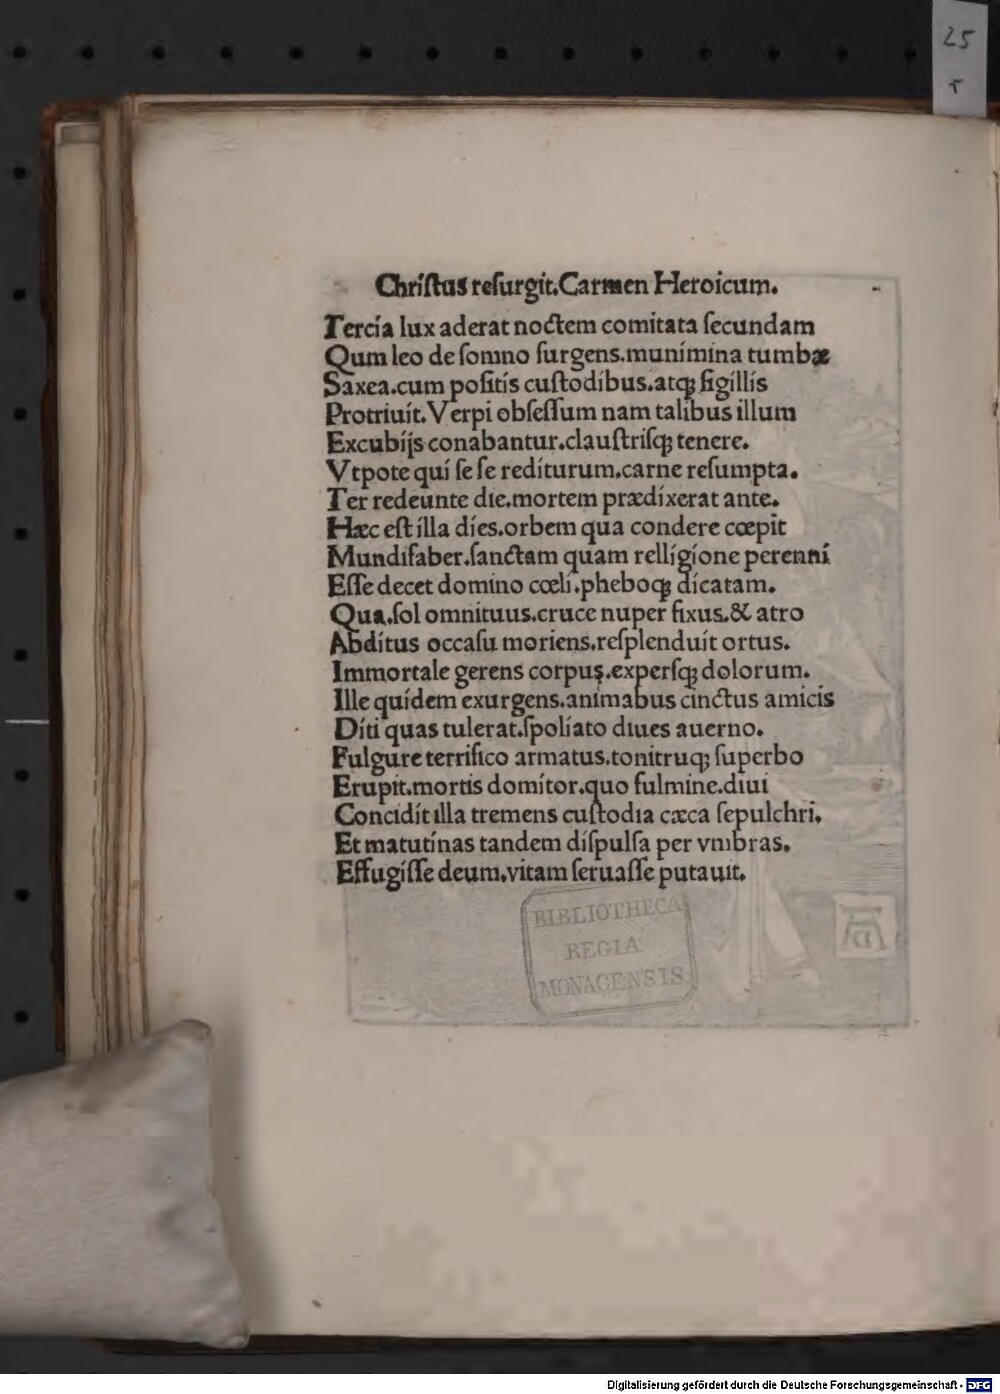 25
r
Chriſtus reſurgit.Carmen Heroicum.
Tercia lux aderat noctem comitata ſecundam
Qum leo de ſomno ſurgens.munimina tumbæ
Saxea.cum poſitis cuſtodibus.atqꝫ ſigillis
Protriuit.Verpi obſeſſum nam talibus illum
Excubijs conabantur.clauſtriſqꝫ tenere.
Vtpote qui ſe ſe rediturum.carne reſumpta.
Ter redeunte die.mortem prædixerat ante.
Hæc eſt illa dies.orbem qua condere cœpit
Mundifaber.ſanctam quam relligione perenni
Eſſe decet domino cœli.pheboqꝫ dicatam.
Qua.ſol omnituus.cruce nuper fixus.& atro
Abditus occaſu moriens.reſplenduit ortus.
Immortale gerens corpus.experſqꝫ dolorum.
Ille quidem exurgens.animabus cinctus amicis
Diti quas tulerat.ſpoliato diues auerno.
Fulgure terrifico armatus.tonitruqꝫ ſuperbo
Erupit.mortis domitor.quo fulmine.diui
Concidit illa tremens cuſtodia cæca ſepulchri.
Et matutinas tandem diſpulſa per vmbras.
Effugiſſe deum.vitam ſeruaſſe putauit.
BIBLIOTHECA
REGIA
MONACENSIS
Digitalisierung gefördert durch die Deutsche Forschungsgemeinschaft - DFG